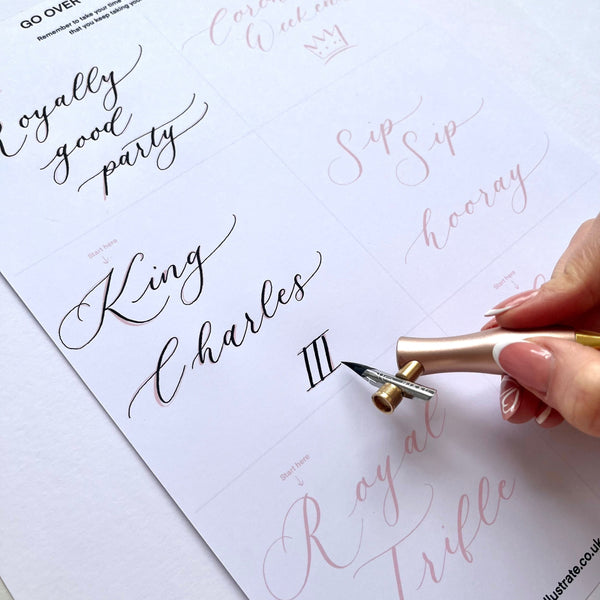 GO OVER
Remember to take your time
that you keep taking you
Weeken
Royally
good
party
Sip
Sip
hooray
Start here
King
Charles
III
Start here
Start here
Royal
Trifle
llustrate.co.uk